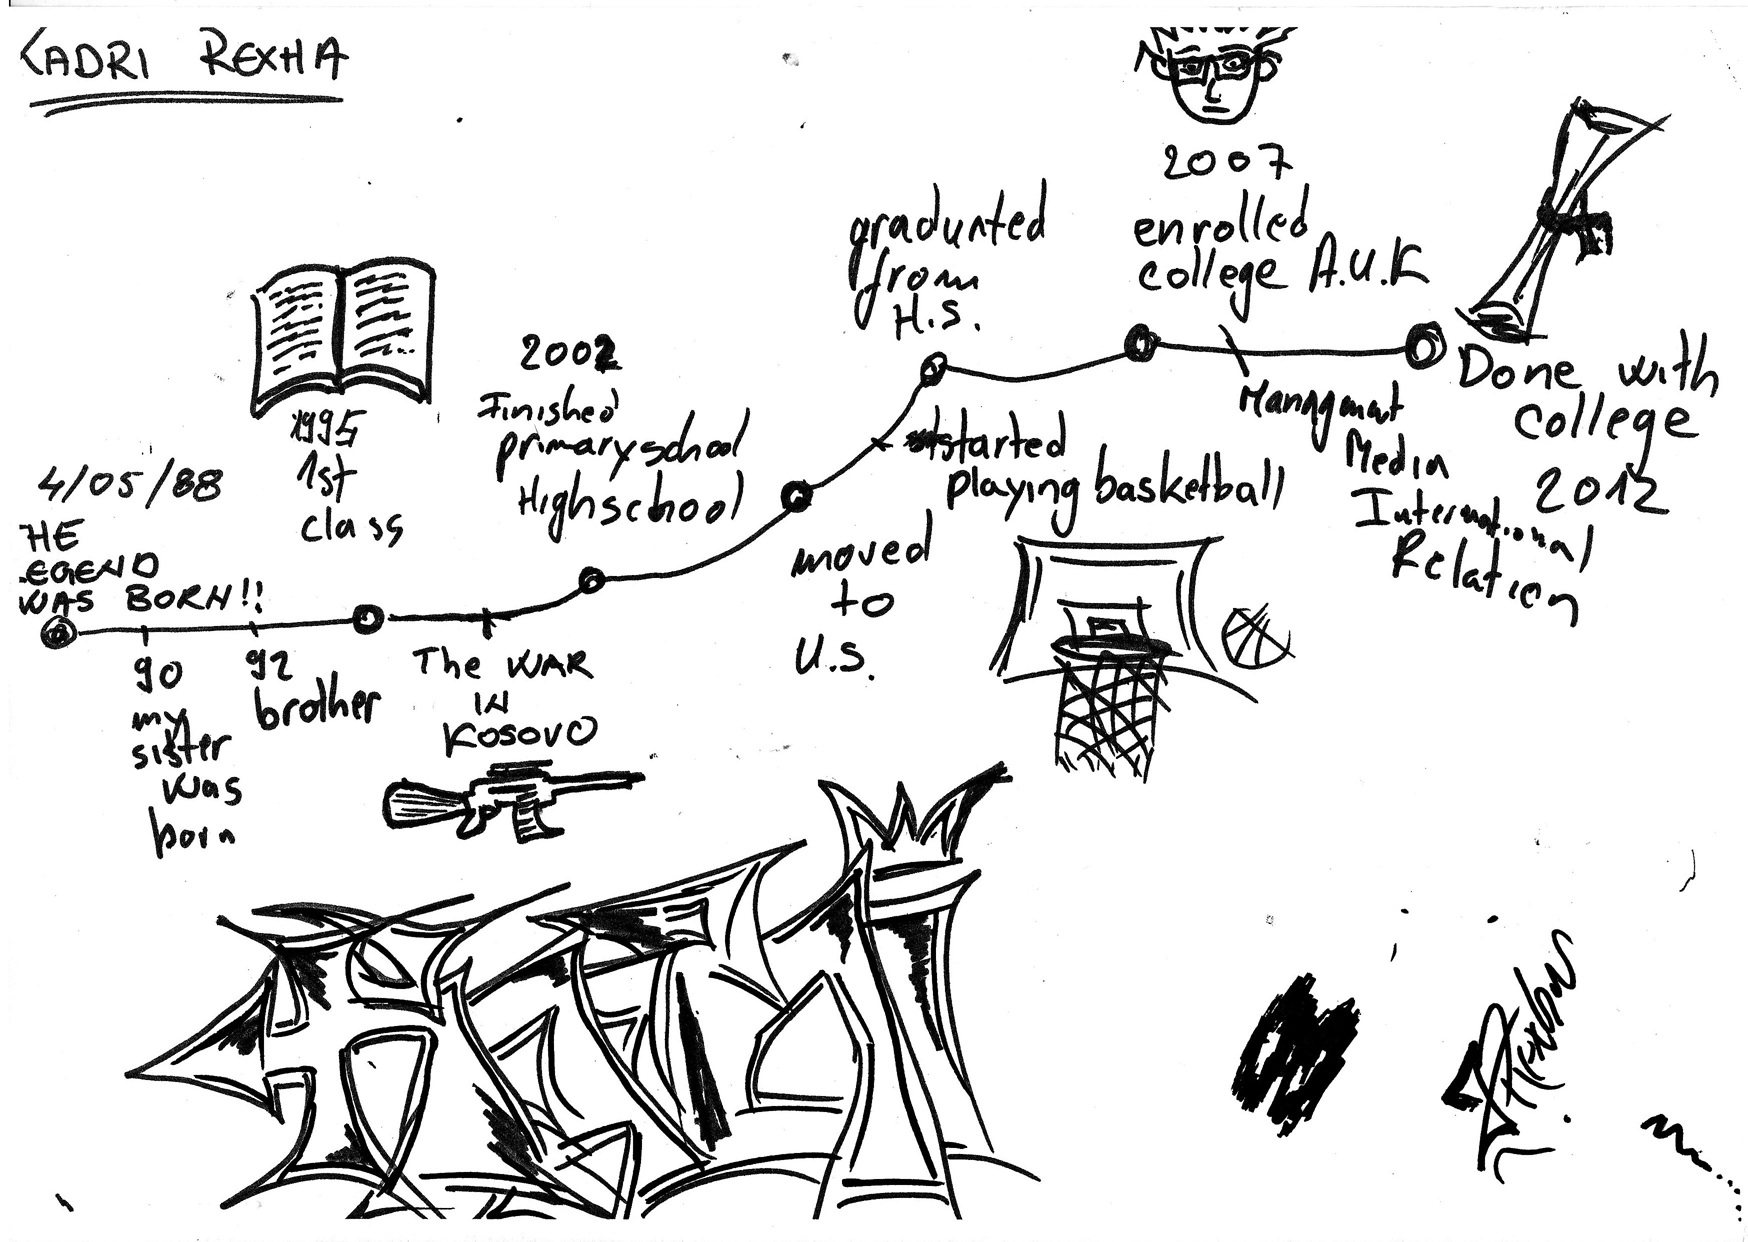 KADRI REXHA
4/05/88
HE
LEGEND
WAS BORN!!
90
my
sister
was
born
92
brother
1995
1st
class
The WAR
IN
KOSOVO
2002
Finished
primary school
High school
moved
to
U.S.
started
playing basketball
graduated
from
H.S.
2007
enrolled
college A.U.K
Managment
Media
International
Relation
Done with
college
2012